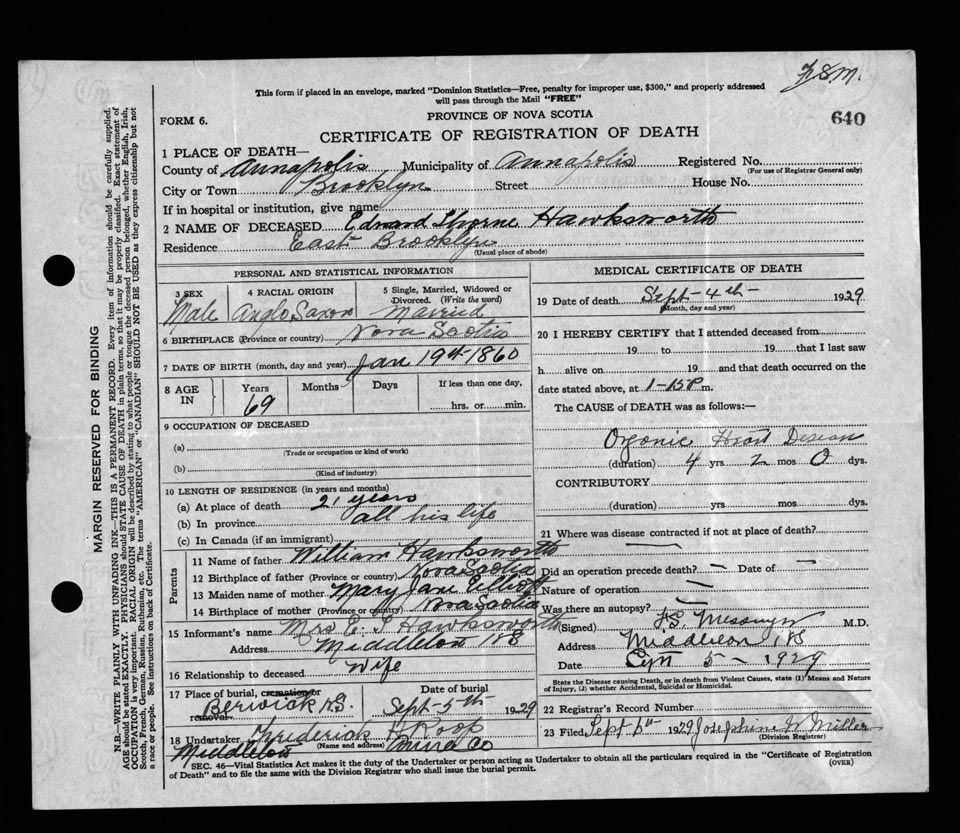 This form if placed in an envelope, marked "Dominion Statistics—Free, penalty for improper use, $300," and properly addressed
will pass through the Mail "FREE"
FORM 6.
PROVINCE OF NOVA SCOTIA
640
CERTIFICATE OF REGISTRATION OF DEATH
1 PLACE OF DEATH—
County of Annapolis Municipality of Annapolis Registered No.
(For use of Registrar General only)
City or Town Brooklyn Street House No.
If in hospital or institution, give name
2 NAME OF DECEASED Edward Thorne Hawksworth
Residence East Brooklyn
(Usual place of abode)
PERSONAL AND STATISTICAL INFORMATION
3 SEX 4 RACIAL ORIGIN 5 Single, Married, Widowed or
Divorced. (Write the word)
Male Anglo Saxon Married
6 BIRTHPLACE (Province or country) Nova Scotia
7 DATE OF BIRTH (month, day and year) Jan 19th 1860
8 AGE IN Years Months Days If less than one day,
69 hrs. or min.
9 OCCUPATION OF DECEASED
(a)
(Trade or occupation or kind of work)
(b)
(Kind of industry)
10 LENGTH OF RESIDENCE (in years and months)
(a) At place of death 21 years
(b) In province all his life
(c) In Canada (if an immigrant)
Parents
11 Name of father William Hawksworth
12 Birthplace of father (Province or country) Nova Scotia
13 Maiden name of mother Mary Jane Elliott
14 Birthplace of mother (Province or country) Nova Scotia
15 Informant's name Mrs E. T Hawksworth
Address Middleton NS
16 Relationship to deceased Wife
17 Place of burial, cremation or Date of burial
removal Berwick N.S. Sept-5th 1929
18 Undertaker Frederick Roop
(Name and address)
Middleton Anna Co
MEDICAL CERTIFICATE OF DEATH
19 Date of death Sept-4th- 1929
(Month, day and year)
20 I HEREBY CERTIFY that I attended deceased from
19 to 19 that I last saw
h alive on 19 and that death occurred on the
date stated above, at 1-15 P m.
The CAUSE OF DEATH was as follows:—
Organic Heart
(duration) 4 yrs 2 mos 0 dys.
CONTRIBUTORY
(duration) yrs mos dys.
21 Where was disease contracted if not at place of death?
Did an operation precede death? — Date of —
Nature of operation —
Was there an autopsy? —
(Signed) M.D.
Address Middleton NS
Date 5 - 1929
State the Disease causing Death, or in death from Violent Causes, state (1) Means and Nature
of Injury, (2) whether Accidental, Suicidal or Homicidal.
22 Registrar's Record Number
23 Filed Sept 6th 1929 Josephine W Miller
(Division Registrar)
SEC. 46—Vital Statistics Act makes it the duty of the Undertaker or person acting as Undertaker to obtain all the particulars required in the "Certificate of Registration
of Death" and to file the same with the Division Registrar who shall issue the burial permit.
(OVER)
MARGIN RESERVED FOR BINDING
N.B.—WRITE PLAINLY WITH UNFADING INK—THIS IS A PERMANENT RECORD. Every item of information should be carefully supplied.
AGE should be stated EXACTLY. PHYSICIANS should STATE CAUSE OF DEATH in plain terms, so that it may be properly classified. Exact statement of
OCCUPATION is very important. RACIAL ORIGIN will be described by stating to what people or tongue the deceased person belonged, whether English, Irish,
Scotch, French, German, Russian, Ruthenian, etc. The terms "AMERICAN" or "CANADIAN" SHOULD NOT BE USED as they express citizenship but not
a race or people. See instructions on back of Certificate.